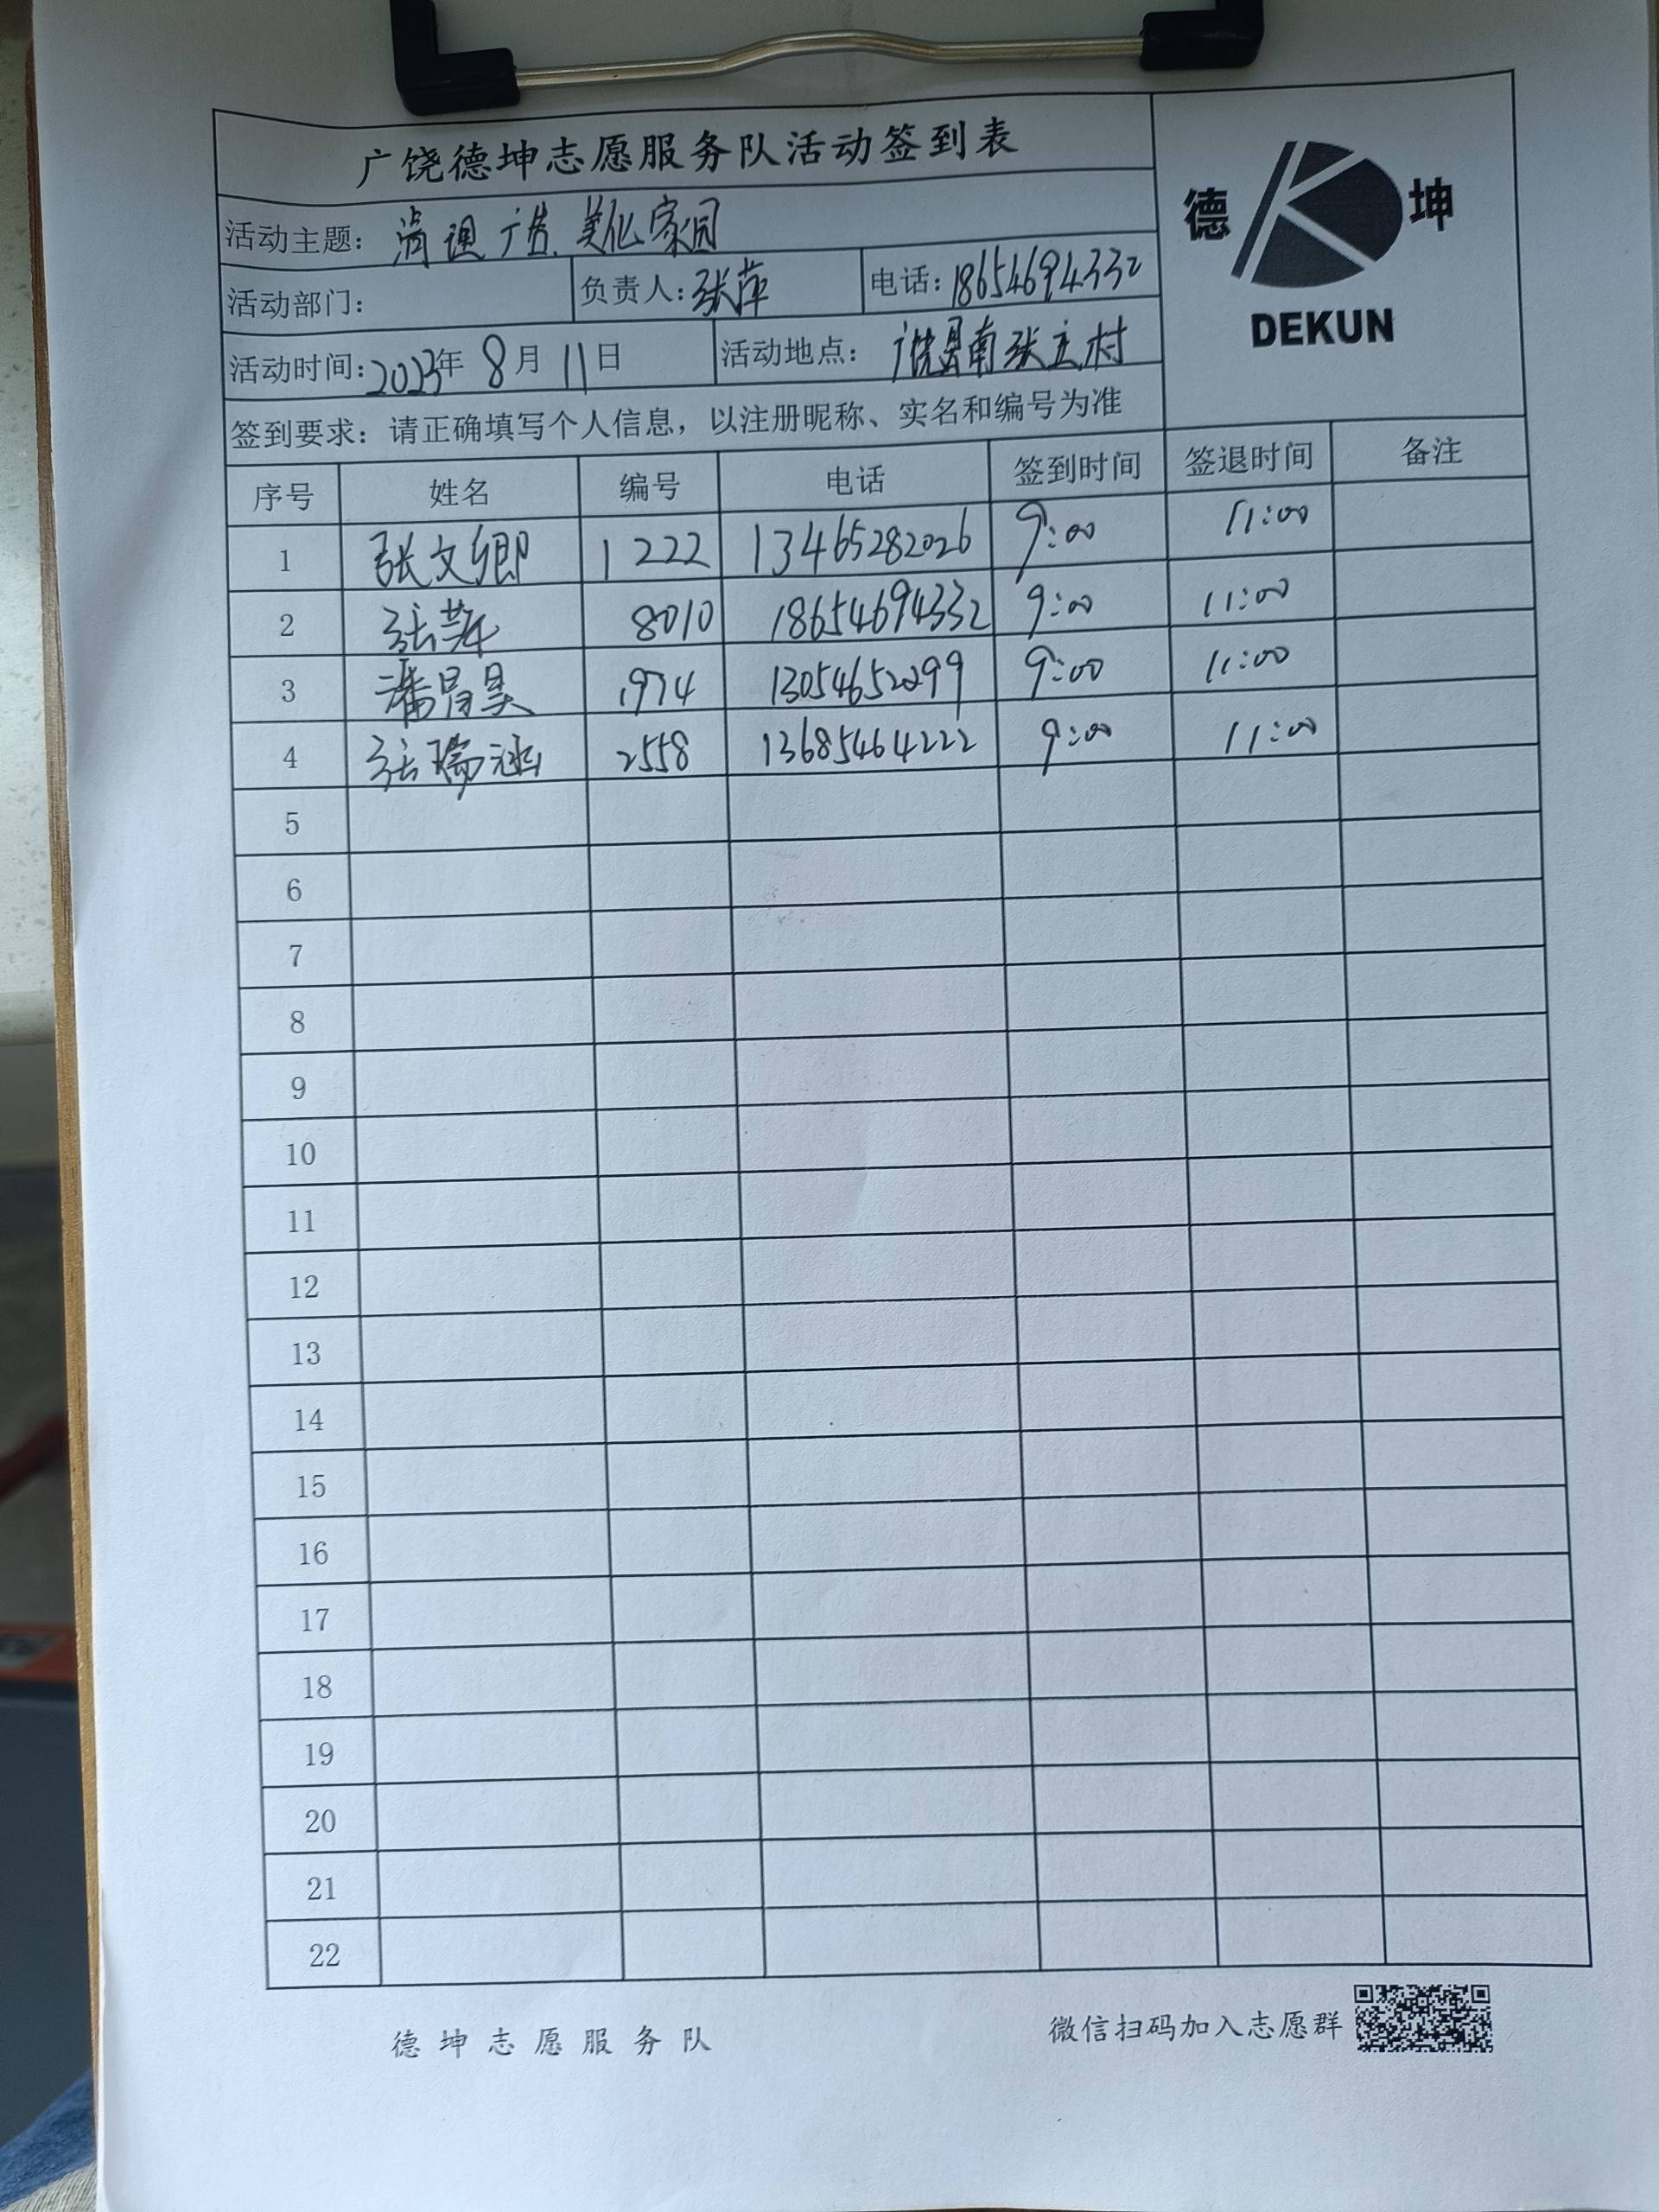 广饶德坤志愿服务队活动签到表
德 坤
DEKUN
活动主题： 清理广告、美化家园
活动部门： 负责人：张萍 电话：18654694332
活动时间：2023年 8月 11日 活动地点：广饶县南张主村
签到要求：请正确填写个人信息，以注册昵称、实名和编号为准
序号 姓名 编号 电话 签到时间 签退时间 备注
1 张文卿 1222 13465282026 9:00 11:00
2 张萍 8010 18654694332 9:00 11:00
3 潘昌昊 1974 13054652299 9:00 11:00
4 张瑞涵 2558 13685464222 9:00 11:00
5
6
7
8
9
10
11
12
13
14
15
16
17
18
19
20
21
22
德坤志愿服务队 微信扫码加入志愿群